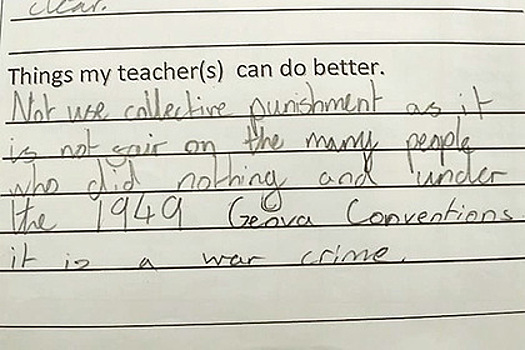 clear.
Things my teacher(s) can do better.
Not use collective punishment as it
is not fair on the many people
who did nothing and under
the 1949 Geniva Conventions
it is a war crime.